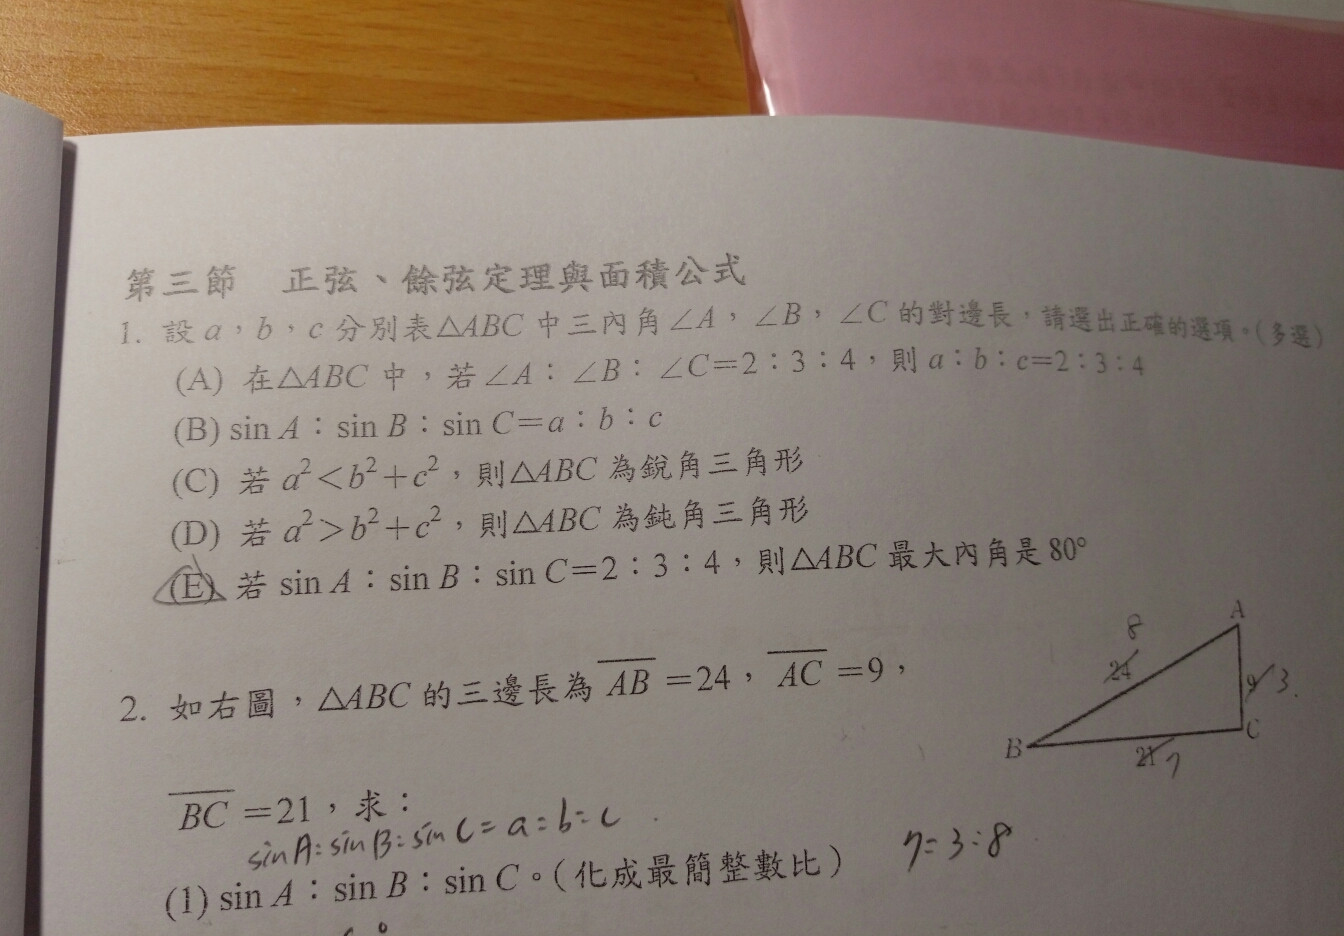 第三節 正弦、餘弦定理與面積公式
1. 設 a，b，c 分別表△ABC 中三內角∠A，∠B，∠C 的對邊長，請選出正確的選項。(多選)
(A) 在△ABC 中，若∠A：∠B：∠C=2：3：4，則 a：b：c=2：3：4
(B) sin A：sin B：sin C=a：b：c
(C) 若 a²<b²+c²，則△ABC 為銳角三角形
(D) 若 a²>b²+c²，則△ABC 為鈍角三角形
(E) 若 sin A：sin B：sin C=2：3：4，則△ABC 最大內角是 80°
2. 如右圖，△ABC 的三邊長為 AB=24，AC=9，
A
8
24
9 3
B
C
21 7
BC=21，求：
sinA:sinB:sinC=a:b:c
7:3:8
(1) sin A：sin B：sin C。(化成最簡整數比)